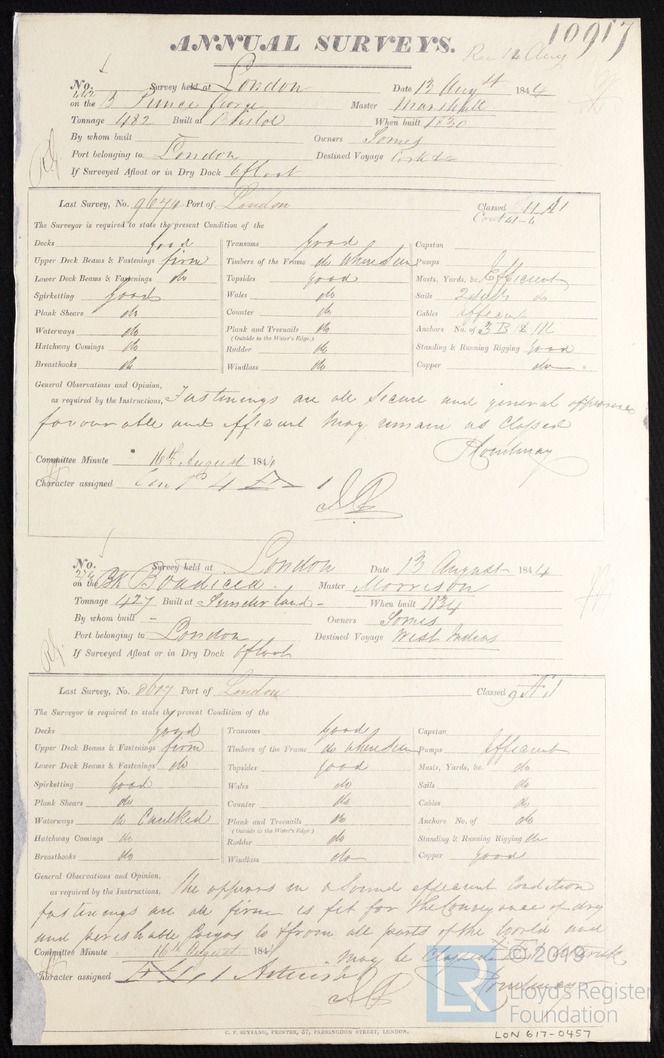 10917
ANNUAL SURVEYS.
Rec 12 Aug
No. 442 Survey held at London Date 13 Augst 1844
on the B Prince George Master Marshall
Tonnage 482 Built at Bristol When built 1830
By whom built Owners Somes
Port belonging to London Destined Voyage Cork &c
If Surveyed Afloat or in Dry Dock Afloat
Last Survey, No. 9670 Port of London Classed 11 A1
Cont 41-4
The Surveyor is required to state the present Condition of the
Decks Good Transoms Good Capstan
Upper Deck Beams & Fastenings firm Timbers of the Frame do where seen Pumps
Lower Deck Beams & Fastenings do Topsides good Masts, Yards, &c. Efficient
Spirketting good Wales do Sails 2 suits do
Plank Shears do Counter do Cables efficient
Waterways do Plank and Treenails do Anchors No. of 3 B
(Outside to the Water's Edge.)
Hatchway Comings do Rudder do Standing & Running Rigging good
Breasthooks do Windlass do Copper do
General Observations and Opinion,
as required by the Instructions, Fastenings are all Secure and general appearance
favourable and efficient may remain as Classed
Committee Minute 16th August 1844
Character assigned
No. 276 Survey held at London Date 13 August 1844
on the Bk Boadicea Master Morrison
Tonnage 427 Built at Sunderland When built 1834
By whom built - Owners Somes
Port belonging to London Destined Voyage West Indies
If Surveyed Afloat or in Dry Dock Afloat
Last Survey, No. 8617 Port of London Classed 9 A1
The Surveyor is required to state the present Condition of the
Decks Good Transoms Good Capstan
Upper Deck Beams & Fastenings firm Timbers of the Frame do where seen Pumps Efficient
Lower Deck Beams & Fastenings do Topsides good Masts, Yards, &c. do
Spirketting good Wales do Sails do
Plank Shears do Counter do Cables do
Waterways do Caulked Plank and Treenails do Anchors No. of do
(Outside to the Water's Edge.)
Hatchway Comings do Rudder do Standing & Running Rigging do
Breasthooks do Windlass do Copper good
General Observations and Opinion,
as required by the Instructions, The appears in a Sound efficient Condition
fastenings are all firm is fit for the Conveyance of dry
and perishable Cargos to & from all parts of the World and
Committee Minute 16th August 1844 may be Classed
Character assigned
© 2019
LR
Lloyd's Register
Foundation
C. F. SEYFANG, PRINTER, 57, FARRINGDON STREET, LONDON.
LON 617-0457